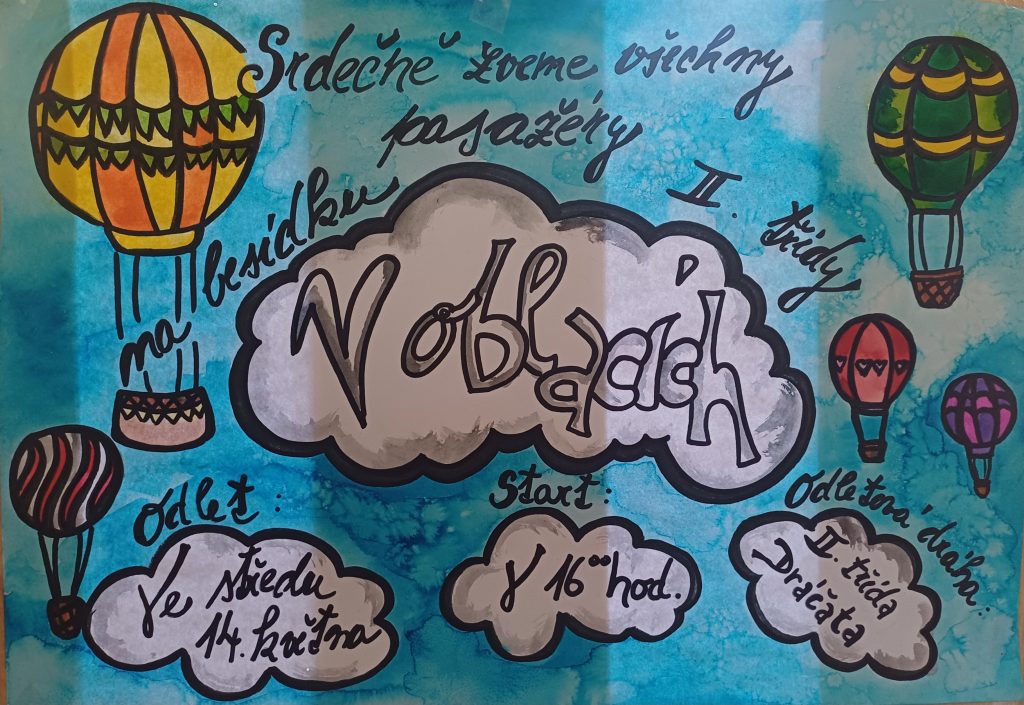 Srdečně zveme všechny
pasažéry
II. třídy
na besídku
V oblacích
Odlet:
Ve středu
14. května
Start:
V 16⁰⁰ hod.
Odletová dráha:
II. třída
Dráčata